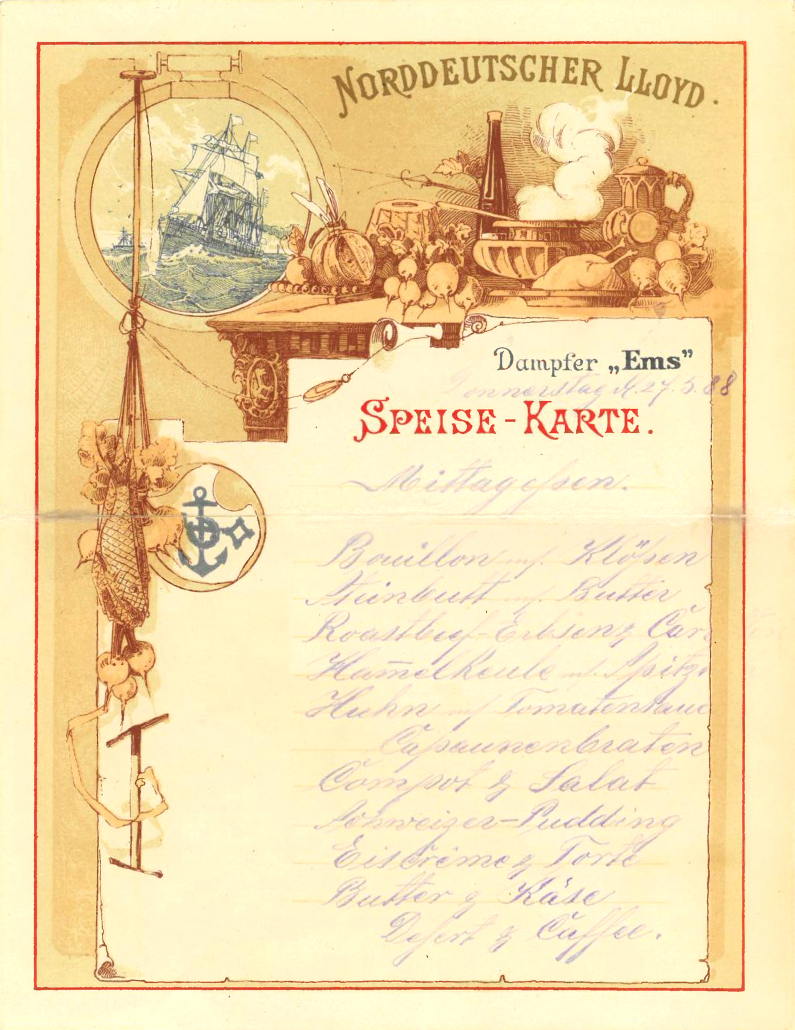 NORDDEUTSCHER LLOYD.
Dampfer „Ems"
Donnerstag d. 27. 88
SPEISE-KARTE.
Mittagessen.
Bouillon m/ Klößen
Steinbutt m/ Butter
Roastbeef-Erbsen &
Ham̅elkeule m/
Huhn m/ Tomatensauc
Capaunenbraten
Compot & Salat
Schweizer-Pudding
Eiscrême & Torte
Butter & Käse
Desert & Caffee.